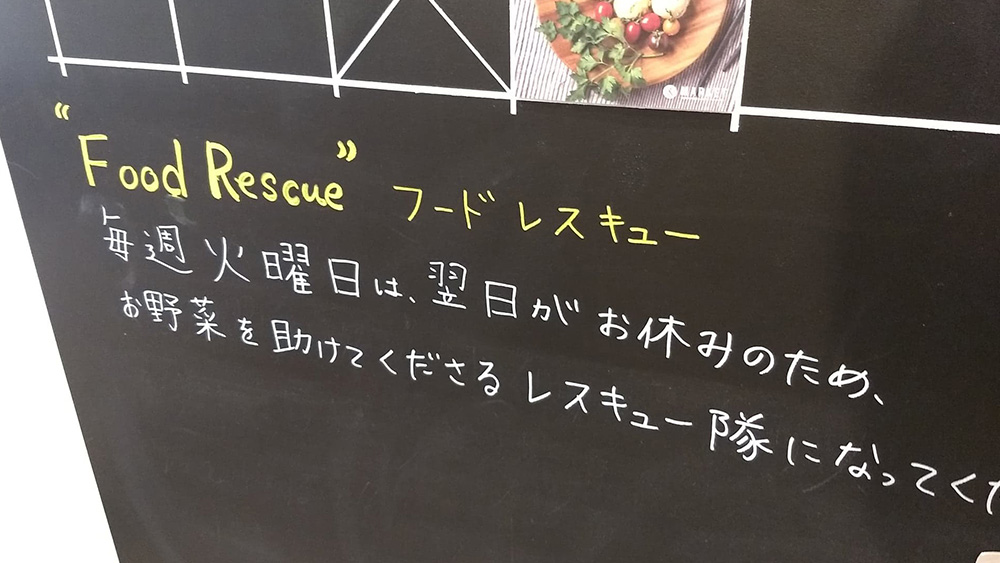 MARKET
"Food Rescue" フードレスキュー
毎週火曜日は、翌日がお休みのため、
お野菜を助けてくださるレスキュー隊になってくだ